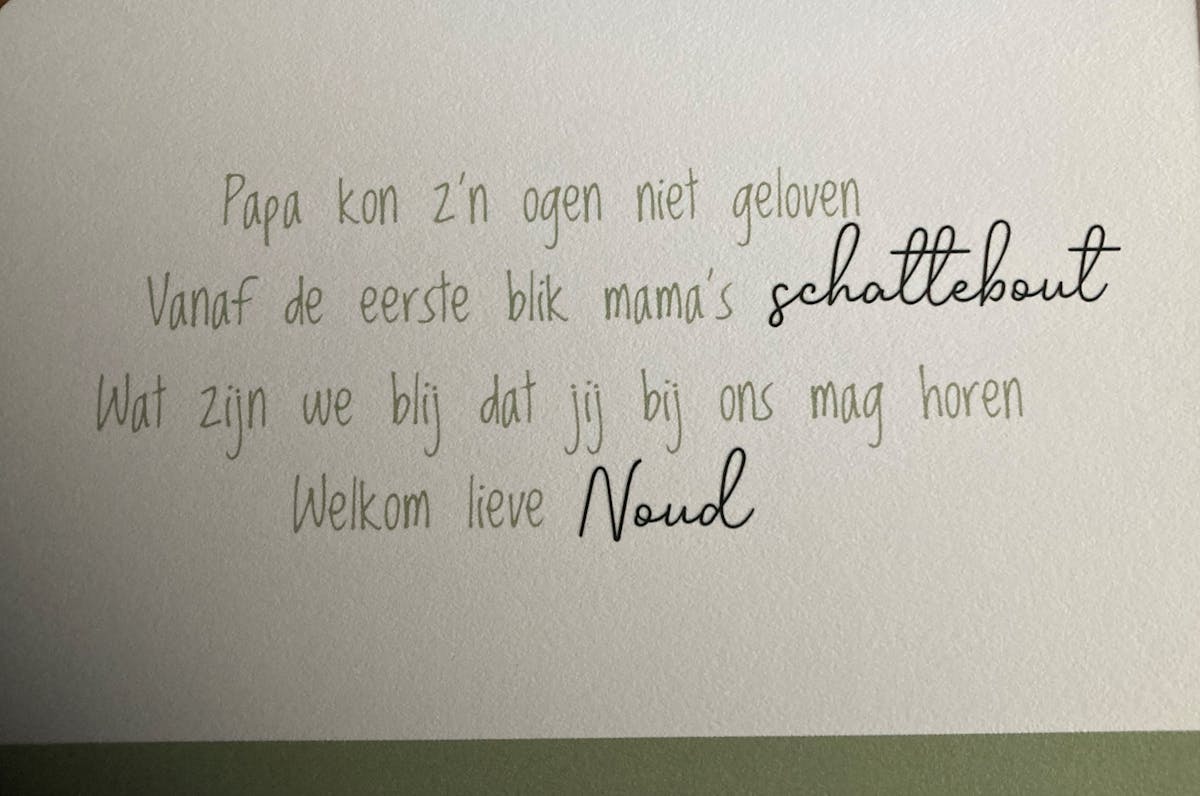 Papa kon z'n ogen niet geloven
Vanaf de eerste blik mama's schattebout
Wat zijn we blij dat jij bij ons mag horen
Welkom lieve Noud